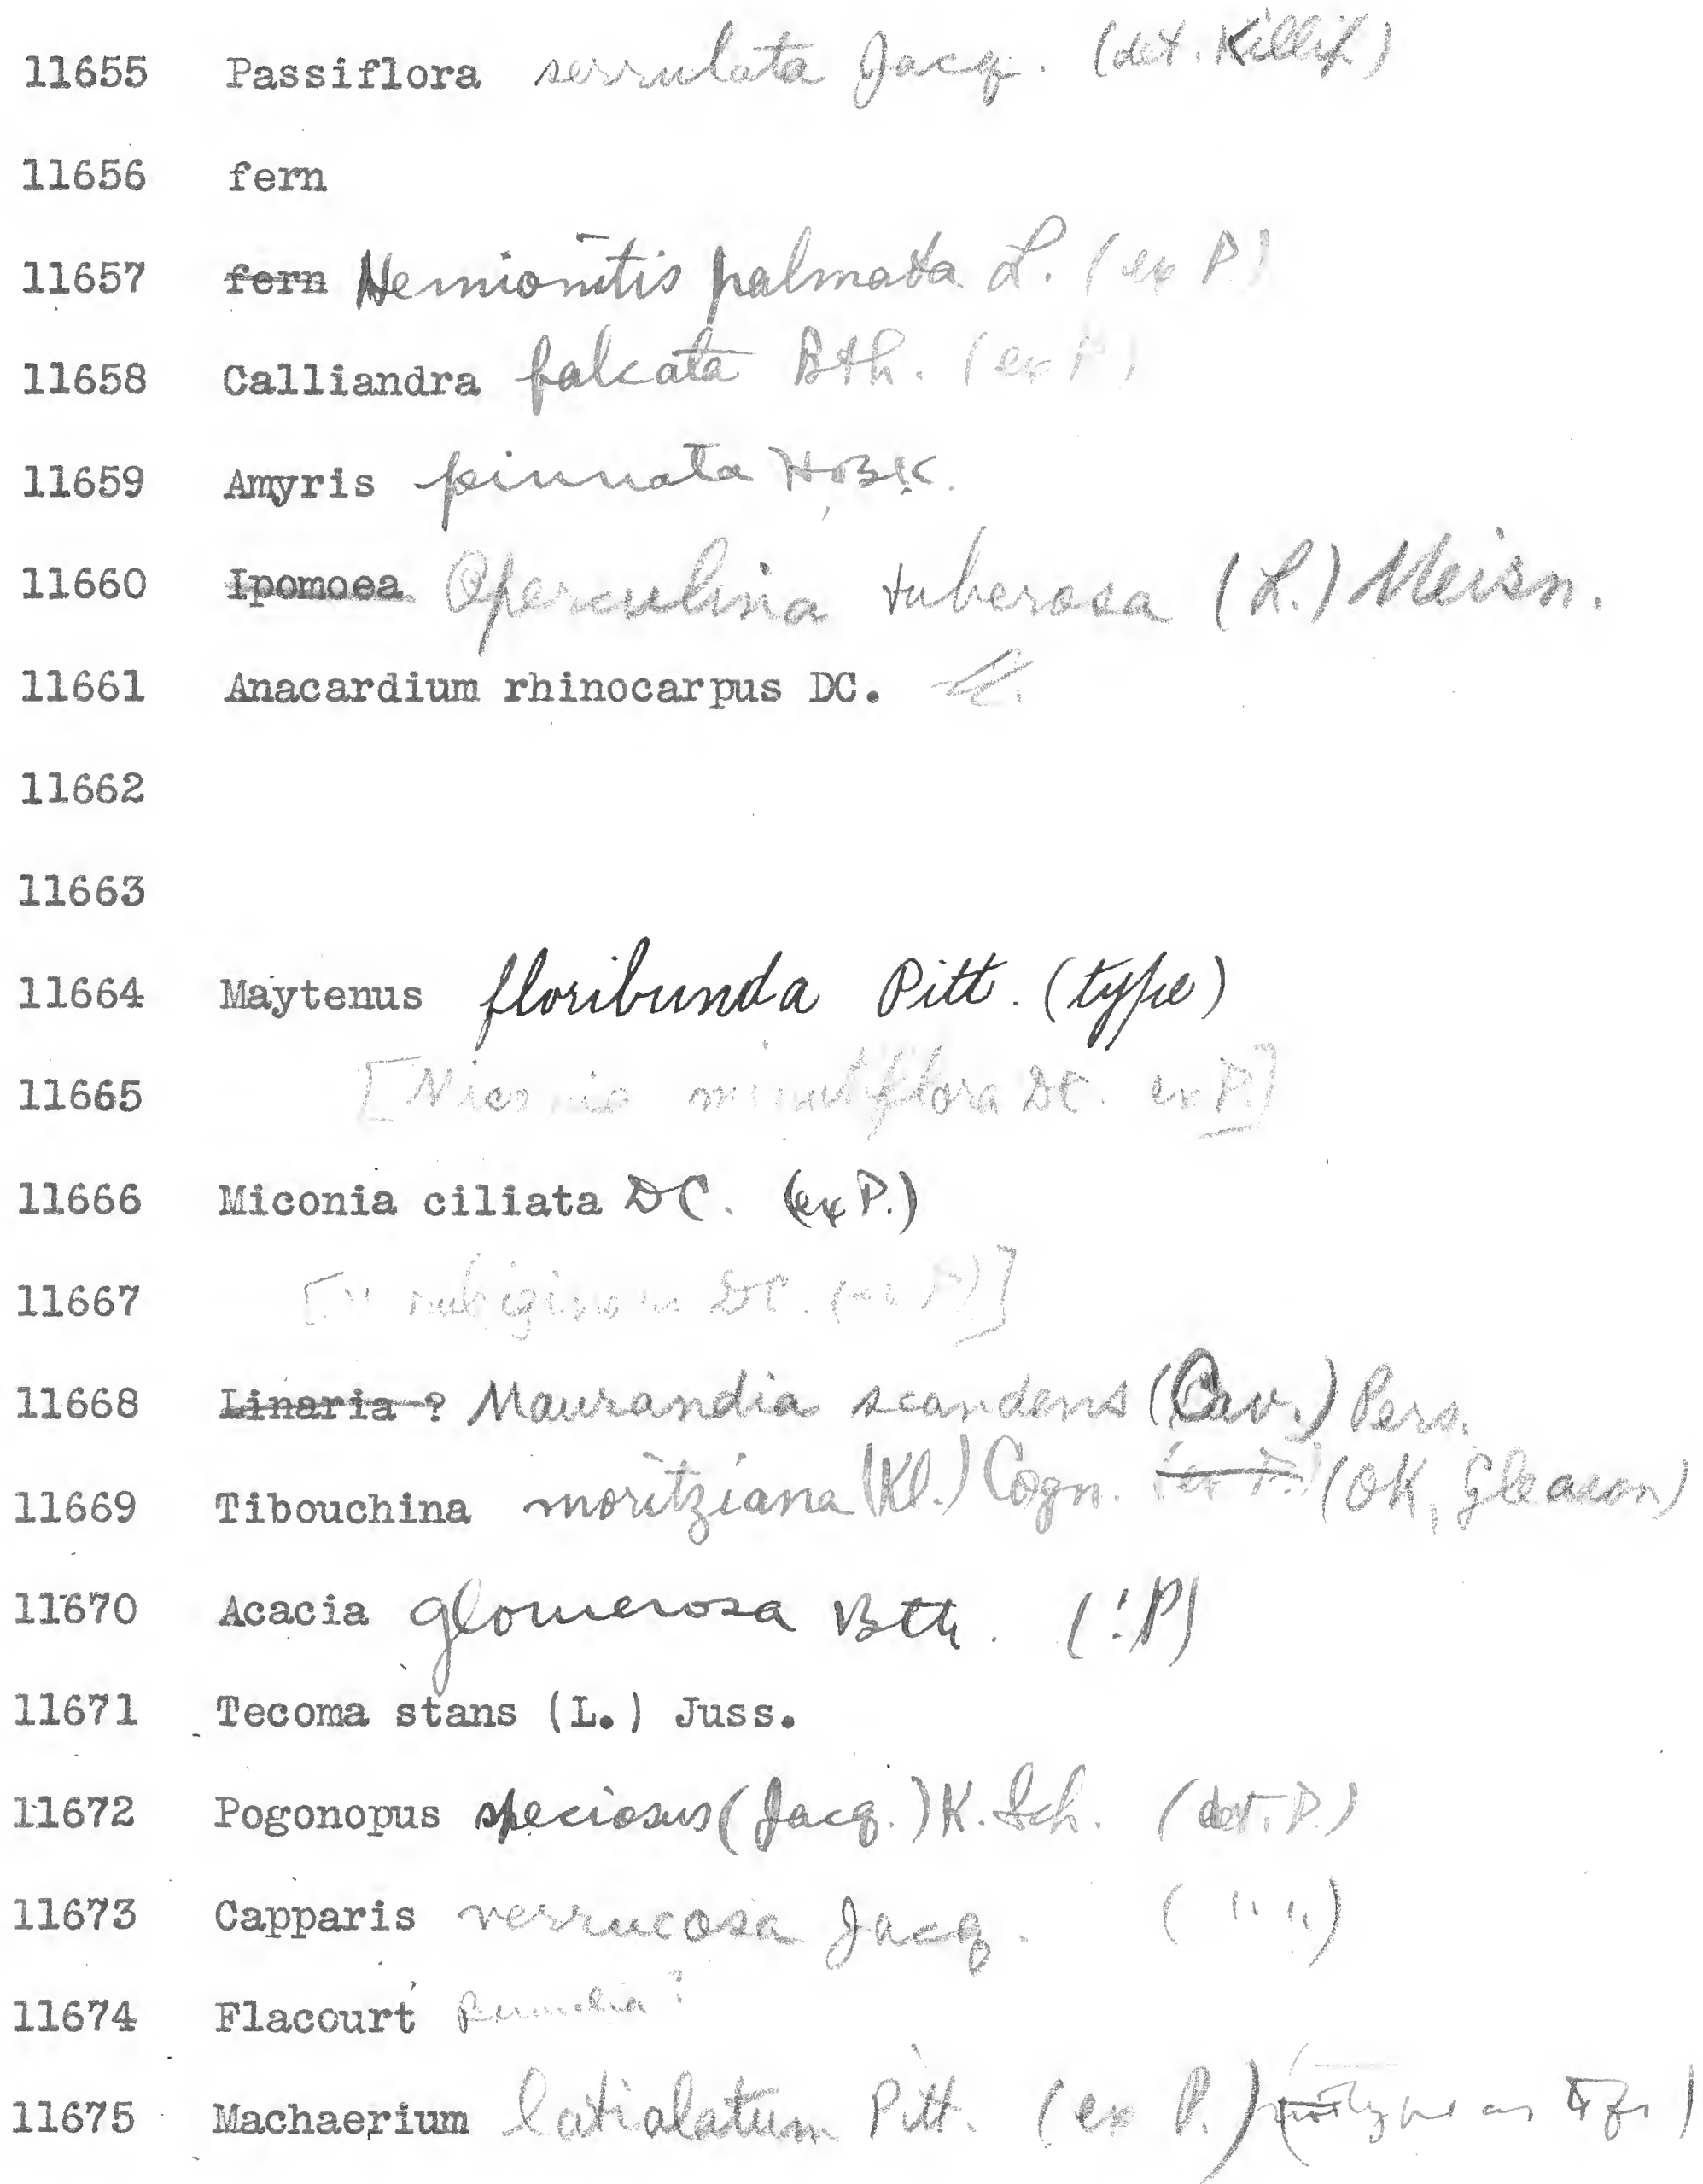 11655 Passiflora serrulata Jacq. (det. Killip)
11656 fern
11657 fern Hemionitis palmata L. (ex P)
11658 Calliandra falcata Bth. (ex P)
11659 Amyris pinnata HBK.
11660 Ipomoea Operculina tuberosa (L.) Meisn.
11661 Anacardium rhinocarpus DC.
11662
11663
11664 Maytenus floribunda Pitt. (type)
11665 [ flora DC. ex P.]
11666 Miconia ciliata DC. (ex P.)
11667 [" rubiginosa DC. (ex P)]
11668 Linaria ? Maurandia scandens (Cav.) Pers.
11669 Tibouchina moritziana (Kl.) Cogn. (ex P.) (OK, Gleason)
11670 Acacia glomerosa Bth. (!P)
11671 Tecoma stans (L.) Juss.
11672 Pogonopus speciosus (Jacq.) K. Sch. (det. P.)
11673 Capparis verrucosa Jacq. ( " " )
11674 Flacourt ?
11675 Machaerium latialatum Pitt. (ex P.)